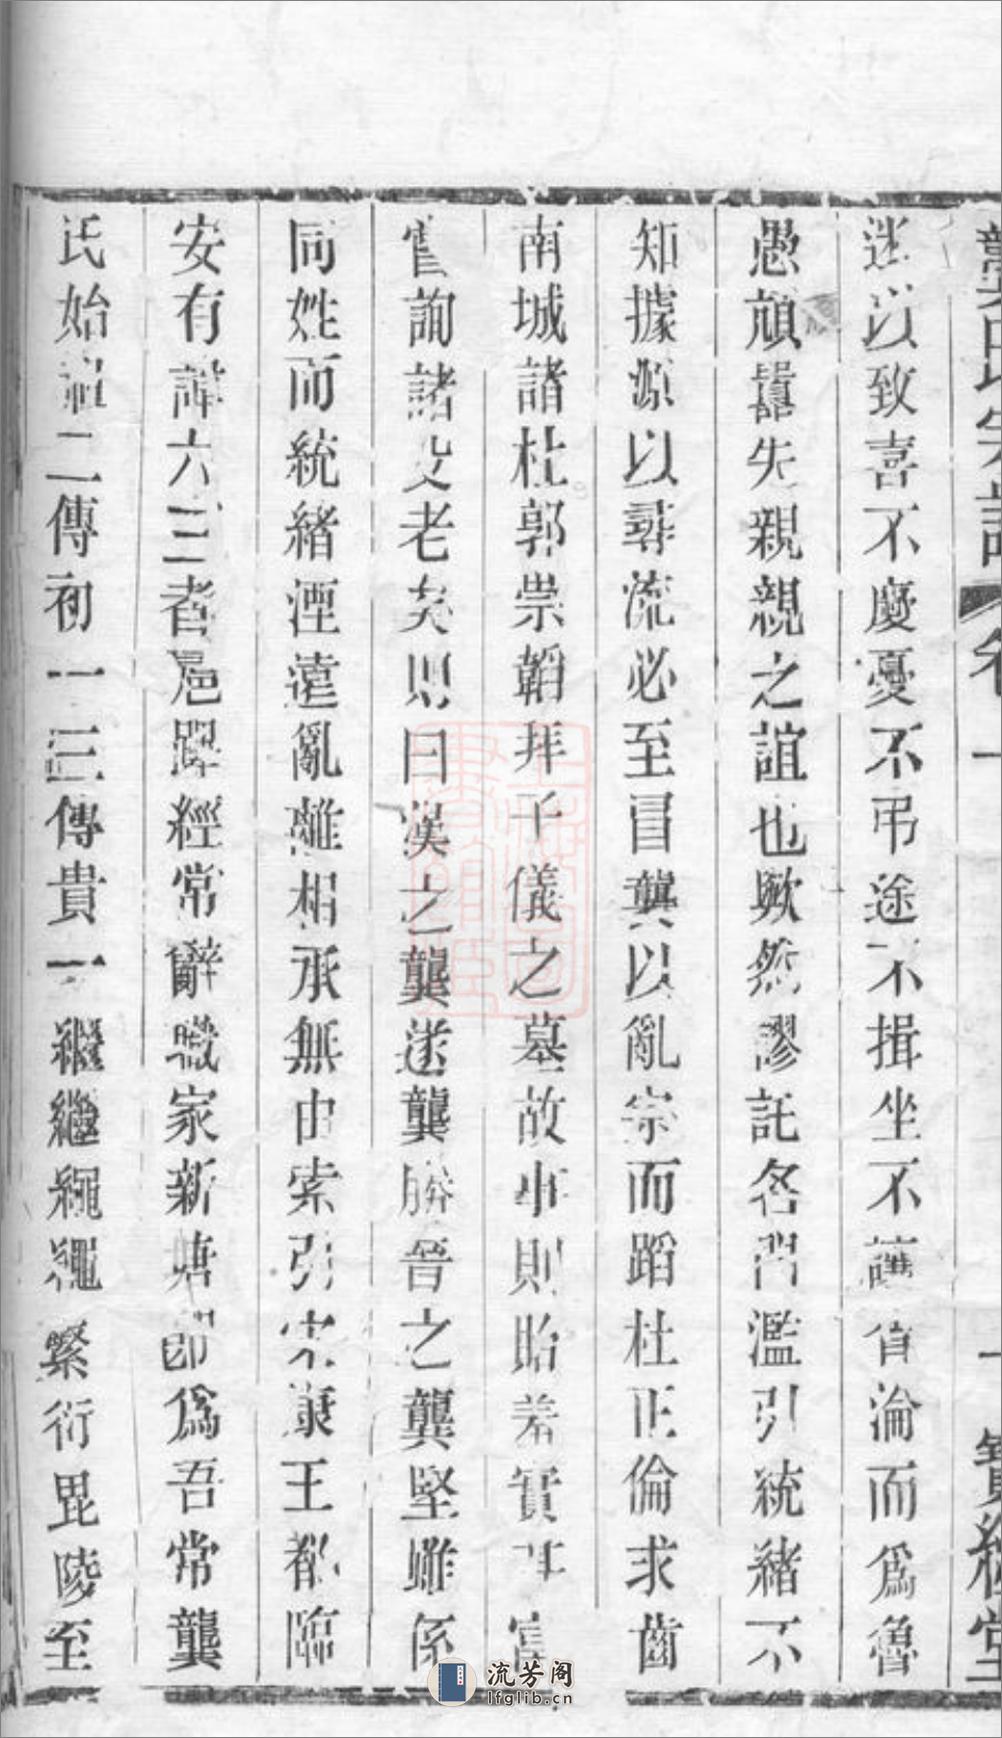 龔氏宗譜 卷一 一 寶經堂
迷以致喜不慶憂不弔途不揖坐不讓胥淪而為魯
愚頑嚚失親親之誼也歟然謬託名門濫引統緒不
知據源以尋流必至冒龔以亂宗而蹈杜正倫求齒
南城諸杜郭崇韜拜子儀之墓故事則貽羞實甚
嘗詢諸父老矣則曰漢之龔遂龔勝晉之龔堅雖係
同姓而統緒湮遠亂離相承無由索引宋康王都臨
安有諱六三者扈蹕經常辭職家新塘即為吾常龔
氏始祖二傳初一三傳貴一繼繼繩繩繁衍毘陵至
流芳阁
lfglib.cn